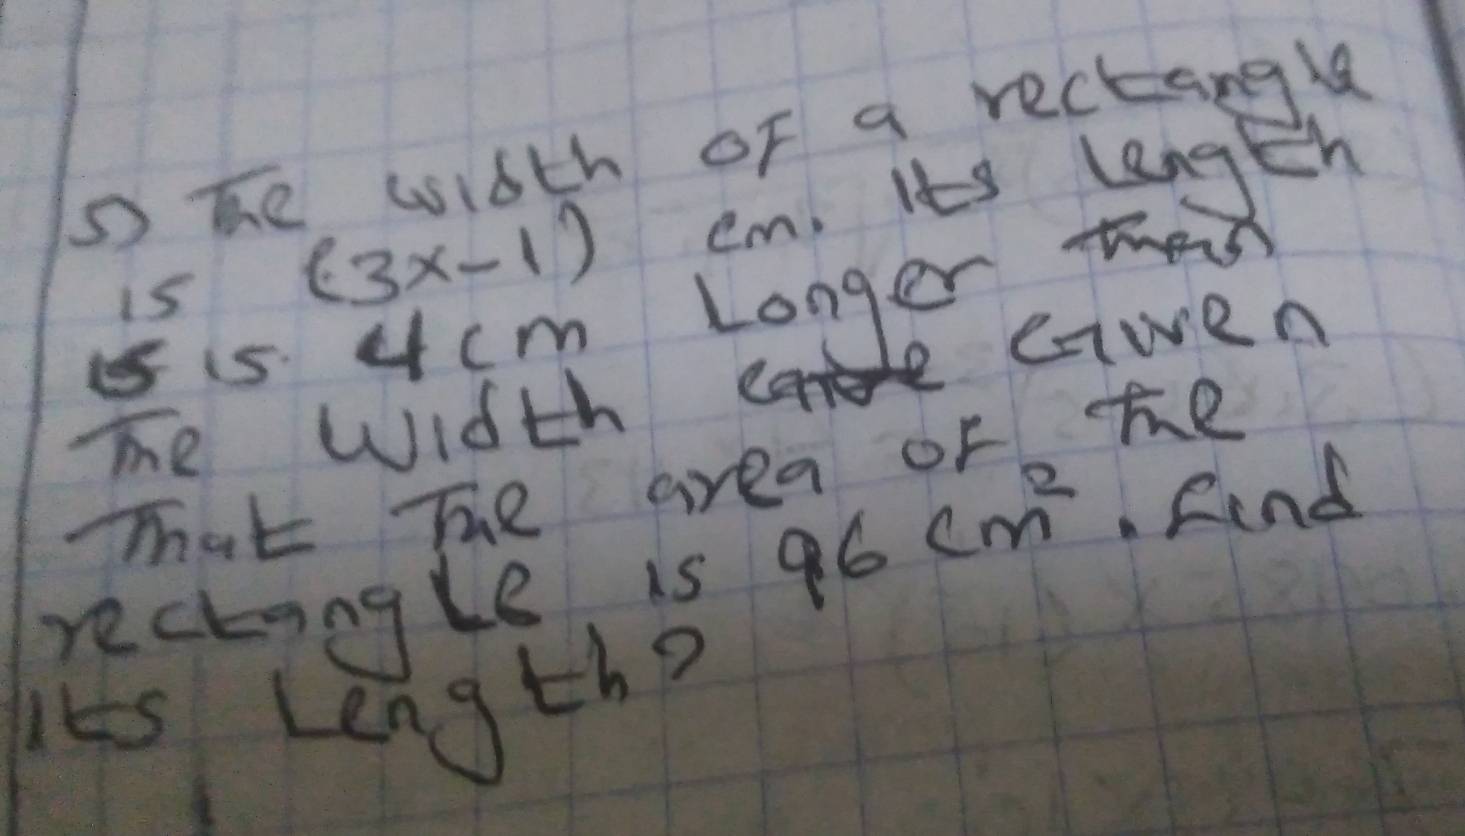 5) The width OF a rectangle
is (3x-1) cm. Its length
is is 4cm Longer than
The Width Given
That The area OF The
rectangLe is 96 cm². Find
Its Length?